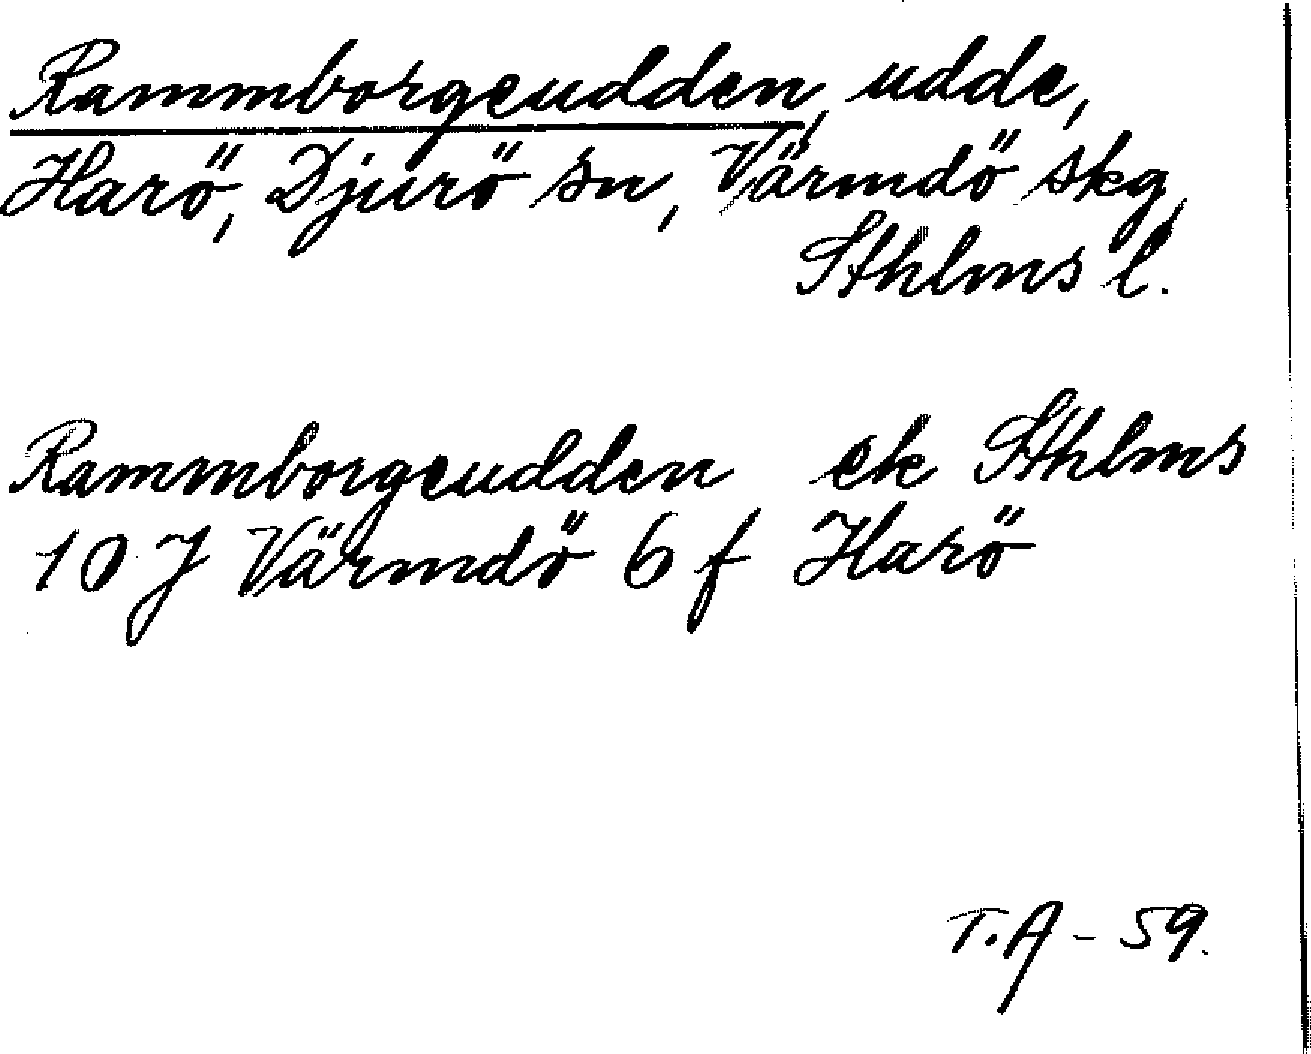 Rammborgeudden, udde,
Harö, Djurö sn, Värmdö skg,
Sthlms l.
Rammborgeudden ek Sthlms
10 J Värmdö 6 f Harö
T.A - 59.